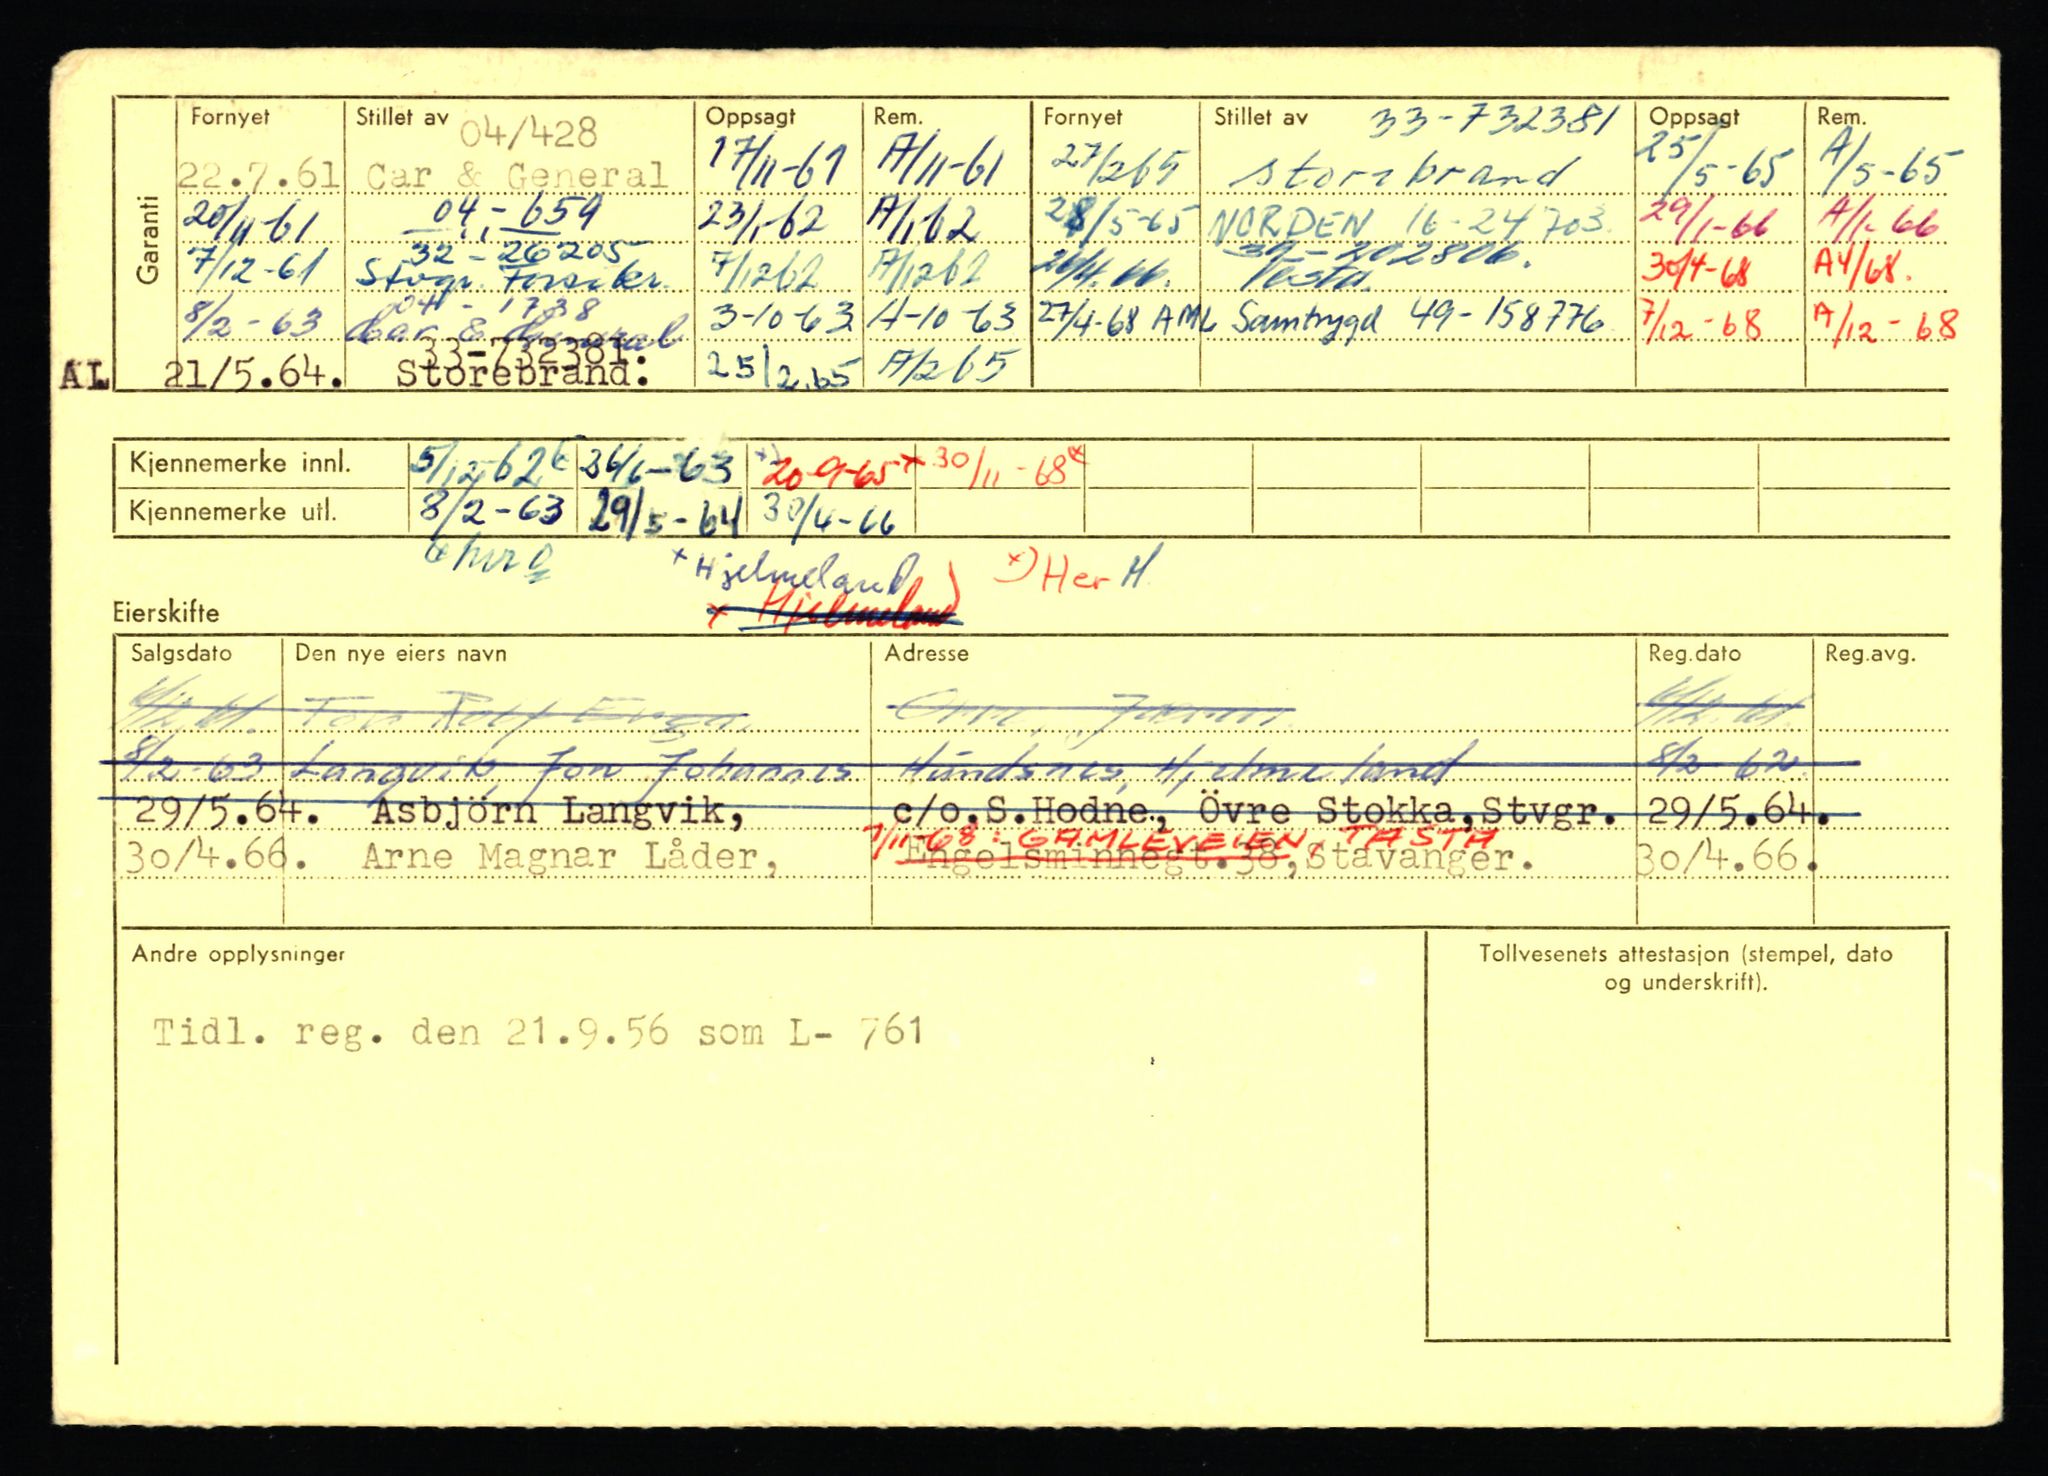 Garanti
Fornyet Stillet av Oppsagt Rem. Fornyet Stillet av 33-732381 Oppsagt Rem.
04/428
22.7.61 Car & General 17/11-61 A/11-61 27/2 65 Storebrand 25/5-65 A/5-65
20/11-61 04-659 23/1-62 A/1 62 28/5-65 NORDEN 16-24703. 29/1-66 A/1-66
7/12-61 32-26205 Stvgr. Forsikr. 7/12 62 A/12 62 26/4.66. 39-202806. Vesta. 30/4-68 A4/68.
8/2-63 04-1738 Car & General 3-10-63 A-10-63 27/4-68 AML Samtrygd 49-158776 7/12-68 A/12-68
33-732381.
AL 21/5.64. Storebrand. 25/2.65 A/2 65
Kjennemerke innl. 5/12-62 26/6-63 x) 20-9-65 x 30/11-68 x
Kjennemerke utl. 8/2-63 29/5-64 30/4-66
x Hjelmeland x) Her H
x Hjelmeland)
Eierskifte
Salgsdato Den nye eiers navn Adresse Reg.dato Reg.avg.
8/2-63 Langvik, Jon Johannes Hundsnes, Hjelmeland 8/2 62.
29/5.64. Asbjörn Langvik, c/o.S.Hodne, Övre Stokka, Stvgr. 29/5.64.
7/11-68: GAMLEVEIEN, TASTA
30/4.66. Arne Magnar Låder, Engelsminnegt.38, Stavanger. 30/4.66.
Andre opplysninger
Tollvesenets attestasjon (stempel, dato
og underskrift).
Tidl. reg. den 21.9.56 som L- 761